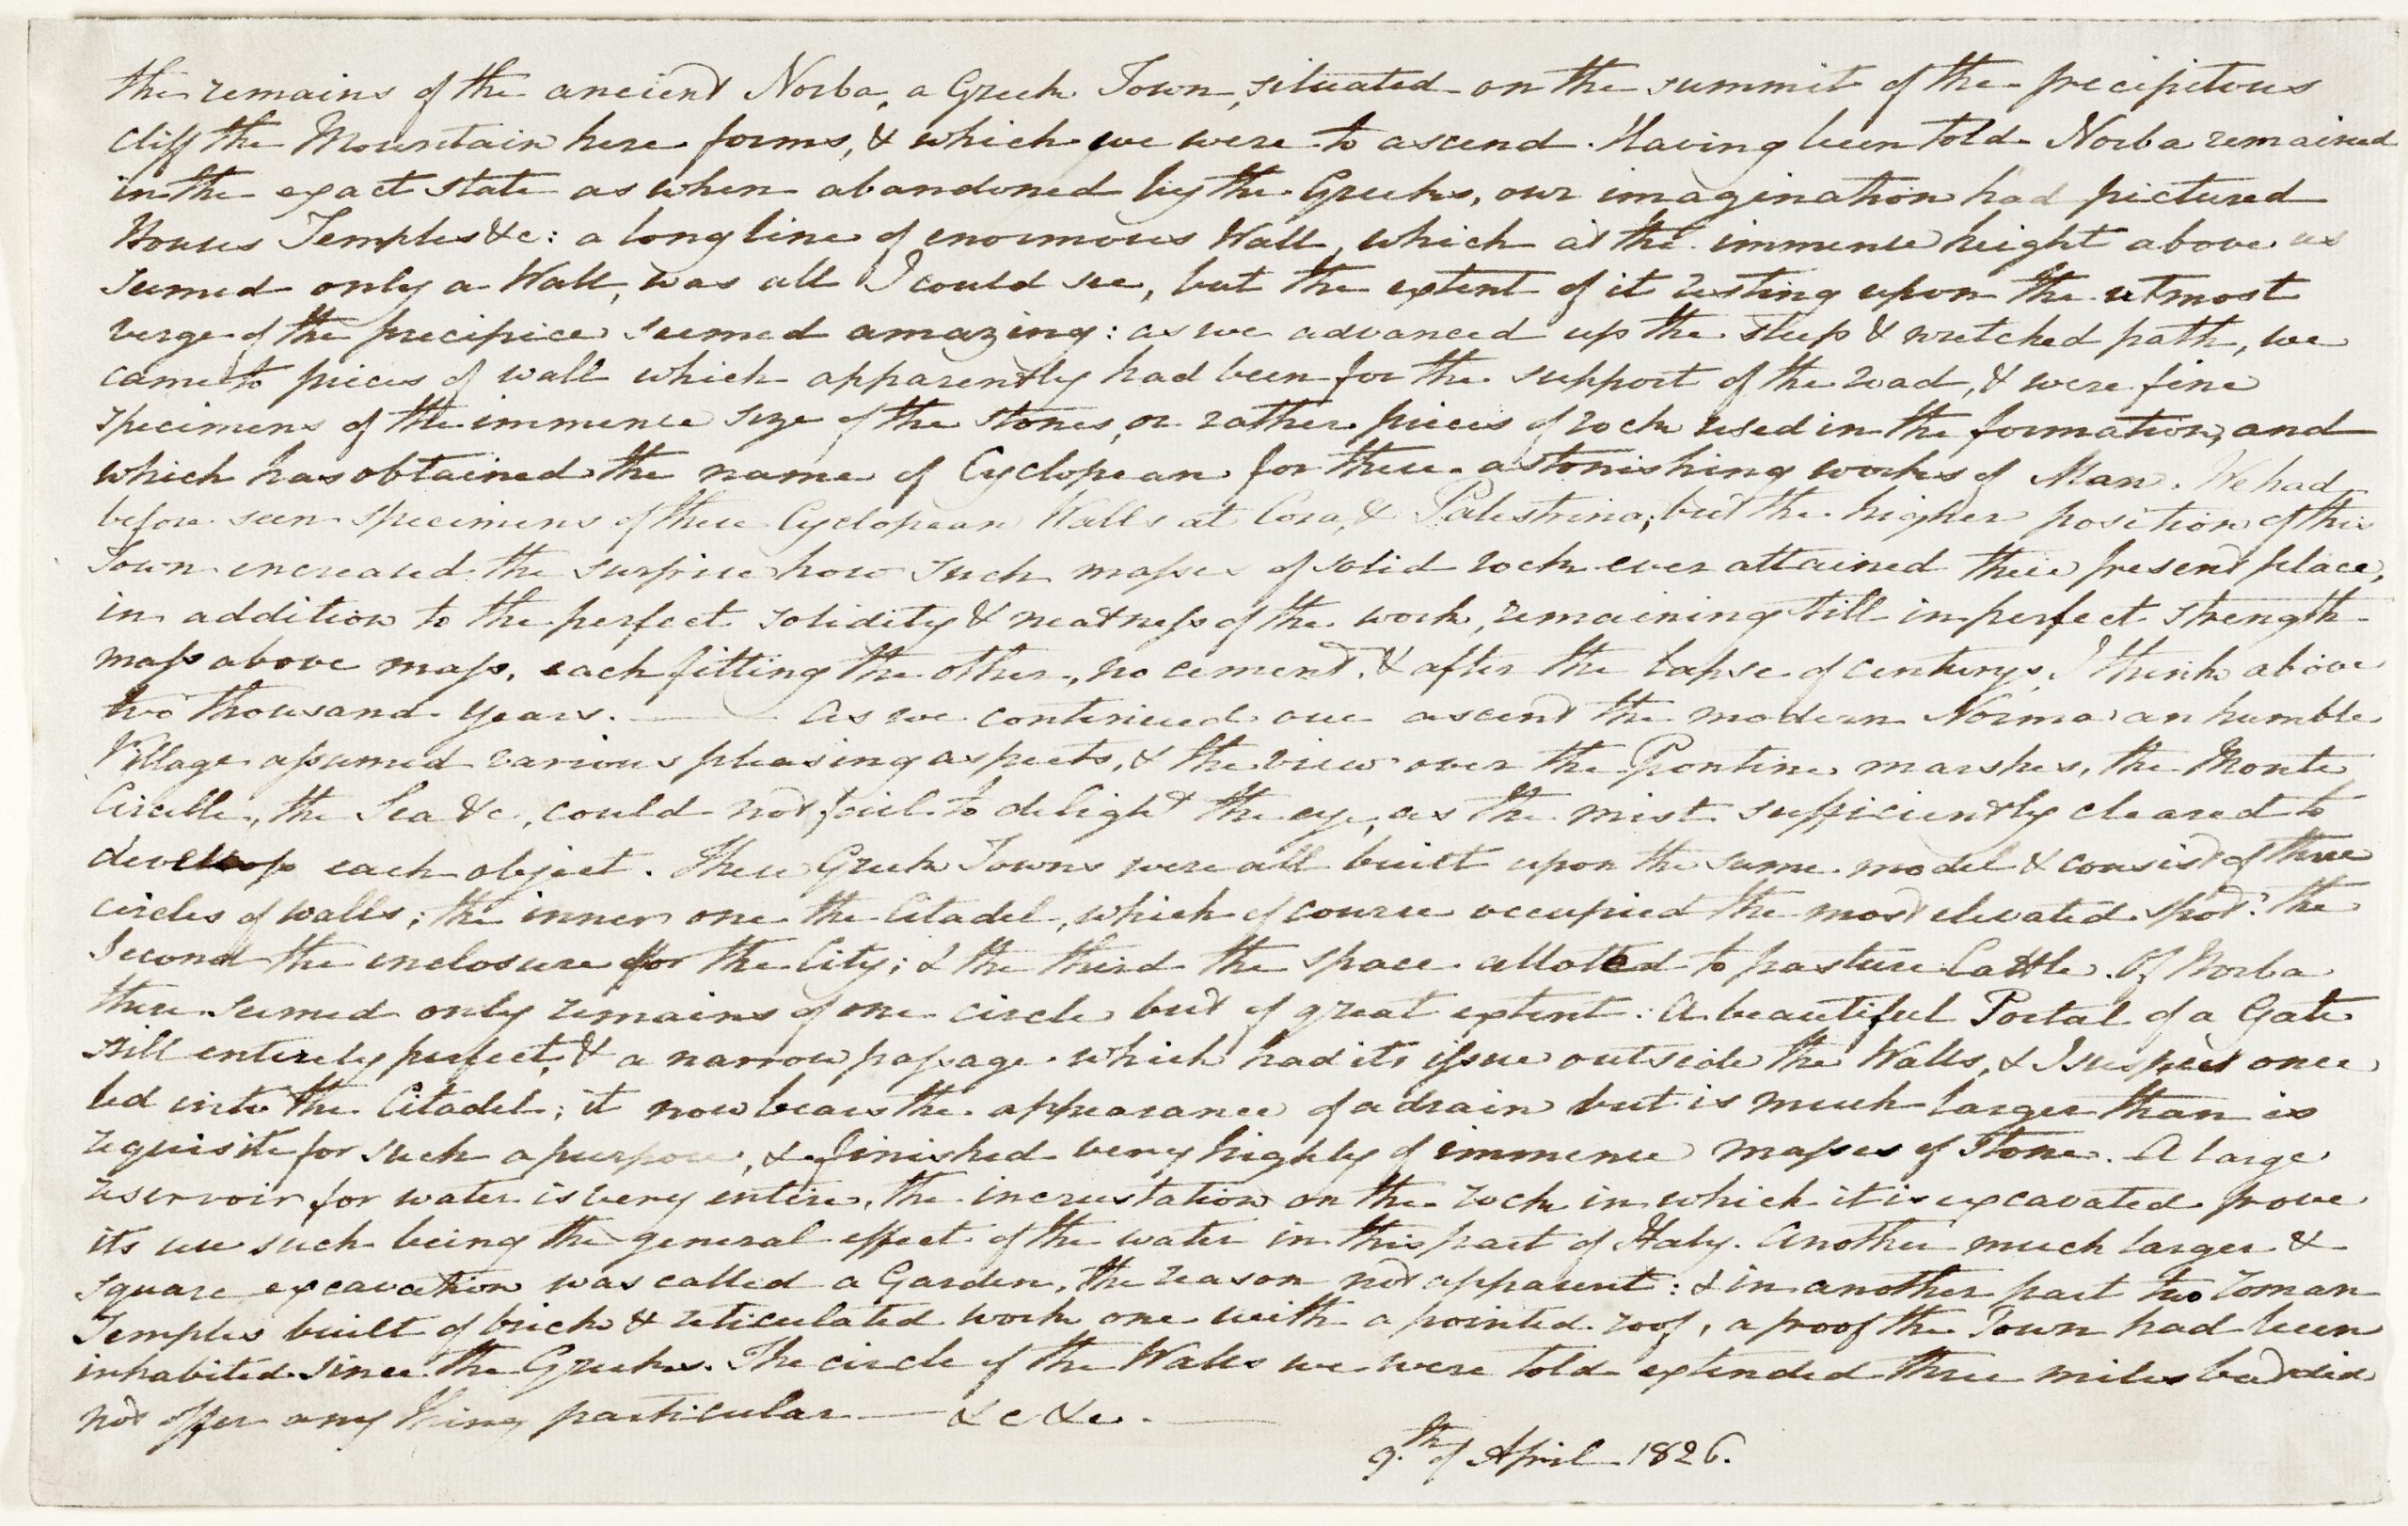 the remains of the ancient Norba, a Greek Town, situated on the summit of the precipitous
cliff the Mountain here forms, & which we were to ascend. Having been told Norba remained
in the exact state as when abandoned by the Greeks, our imagination had pictured
Houses Temples &c: a long line of enormous Wall, which at the immense height above us
seemed only a Wall, was all I could see, but the extent of it resting upon the utmost
verge of the precipice seemed amazing: as we advanced up the steep & wretched path, we
came to pieces of wall which apparently had been for the support of the road, & were fine
specimens of the immense size of the stones, or rather pieces of rock used in the formation, and
which has obtained the name of Cyclopean for these astonishing works of Man. We had
before seen specimens of these Cyclopean Walls at Cora, & Palestrina; but the higher position of this
Town encreased the surprise how such masses of solid rock ever attained their present place,
in addition to the perfect solidity & neatness of the work, remaining still in perfect strength
mass above mass, each fitting the other, no cement, & after the lapse of centurys, I think above
two thousand years. — As we continued our ascent the modern Norma an humble
Village assumed various pleasing aspects, & the view over the Pontine marshes, the Monte
Circello, the Sea &c, could not fail to delight the eye, as the mist sufficiently cleared to
develop each object. These Greek Towns were all built upon the same model & consist of three
circles of walls; the inner one the Citadel, which of course occupied the most elevated spot: the
Second the enclosure for the City; & the third the space alloted to pasture Cattle. Of Norba
there seemed only remains of one circle but of great extent: A beautiful Portal of a Gate
still entirely perfect, & a narrow passage which had its issue outside the Walls, & I suspect once
led into the Citadel; it now bears the appearance of a drain but is much larger than is
requisite for such a purpose, & finished very highly of immense masses of Stone. A large
reservoir for water is very entire, the incrustation on the rock in which it is excavated prove
its use such being the general effect of the water in this part of Italy. Another much larger &
square excavation was called a Garden, the reason not apparent: & in another part two roman
Temples built of brick & reticulated work one with a pointed roof, a proof the Town had been
inhabited since the Greeks. The circle of the Walls we were told extended three miles but did
not offer any thing particular — &c &c. —
9.th of April 1826.